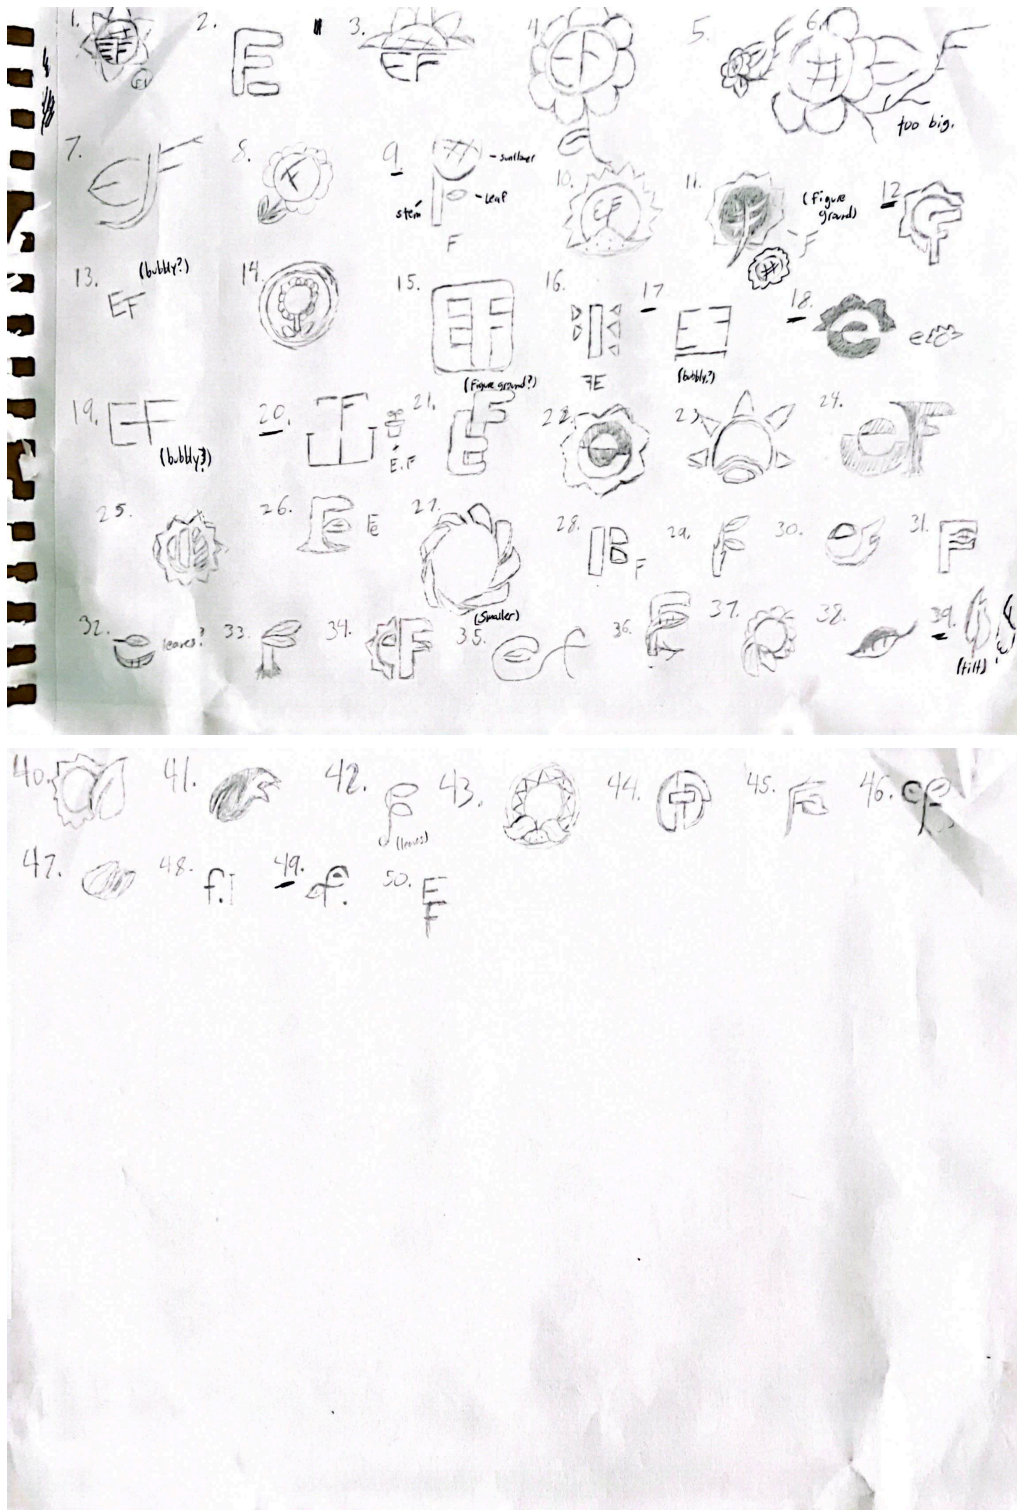 1.
EF
EF
2.
E
3.
EF
4.
EF
5.
6.
#
F
too big.
7.
8.
F
9.
- sunflower
- leaf
stem
F
10.
eF
11.
(Figure ground)
F
#
12
eF
13.
(bubbly?)
EF
14.
15.
EF
(Figure ground?)
16.
ƎE
17
EF
(bubbly?)
18.
e
e
19.
EF
(bubbly?)
20.
F
E.F
21.
EF
22.
e
23.
24.
eF
25.
26.
Fe
E
27.
(Smaller)
28.
B
F
29.
F
30.
31.
F
32.
leaves?
33.
34.
eF
35.
ef
36.
37.
38.
39.
(tilt)
40.
41.
42.
(leaves)
43.
44.
45.
F
46.
ef
47.
48.
f.
49.
f.
50.
E
F